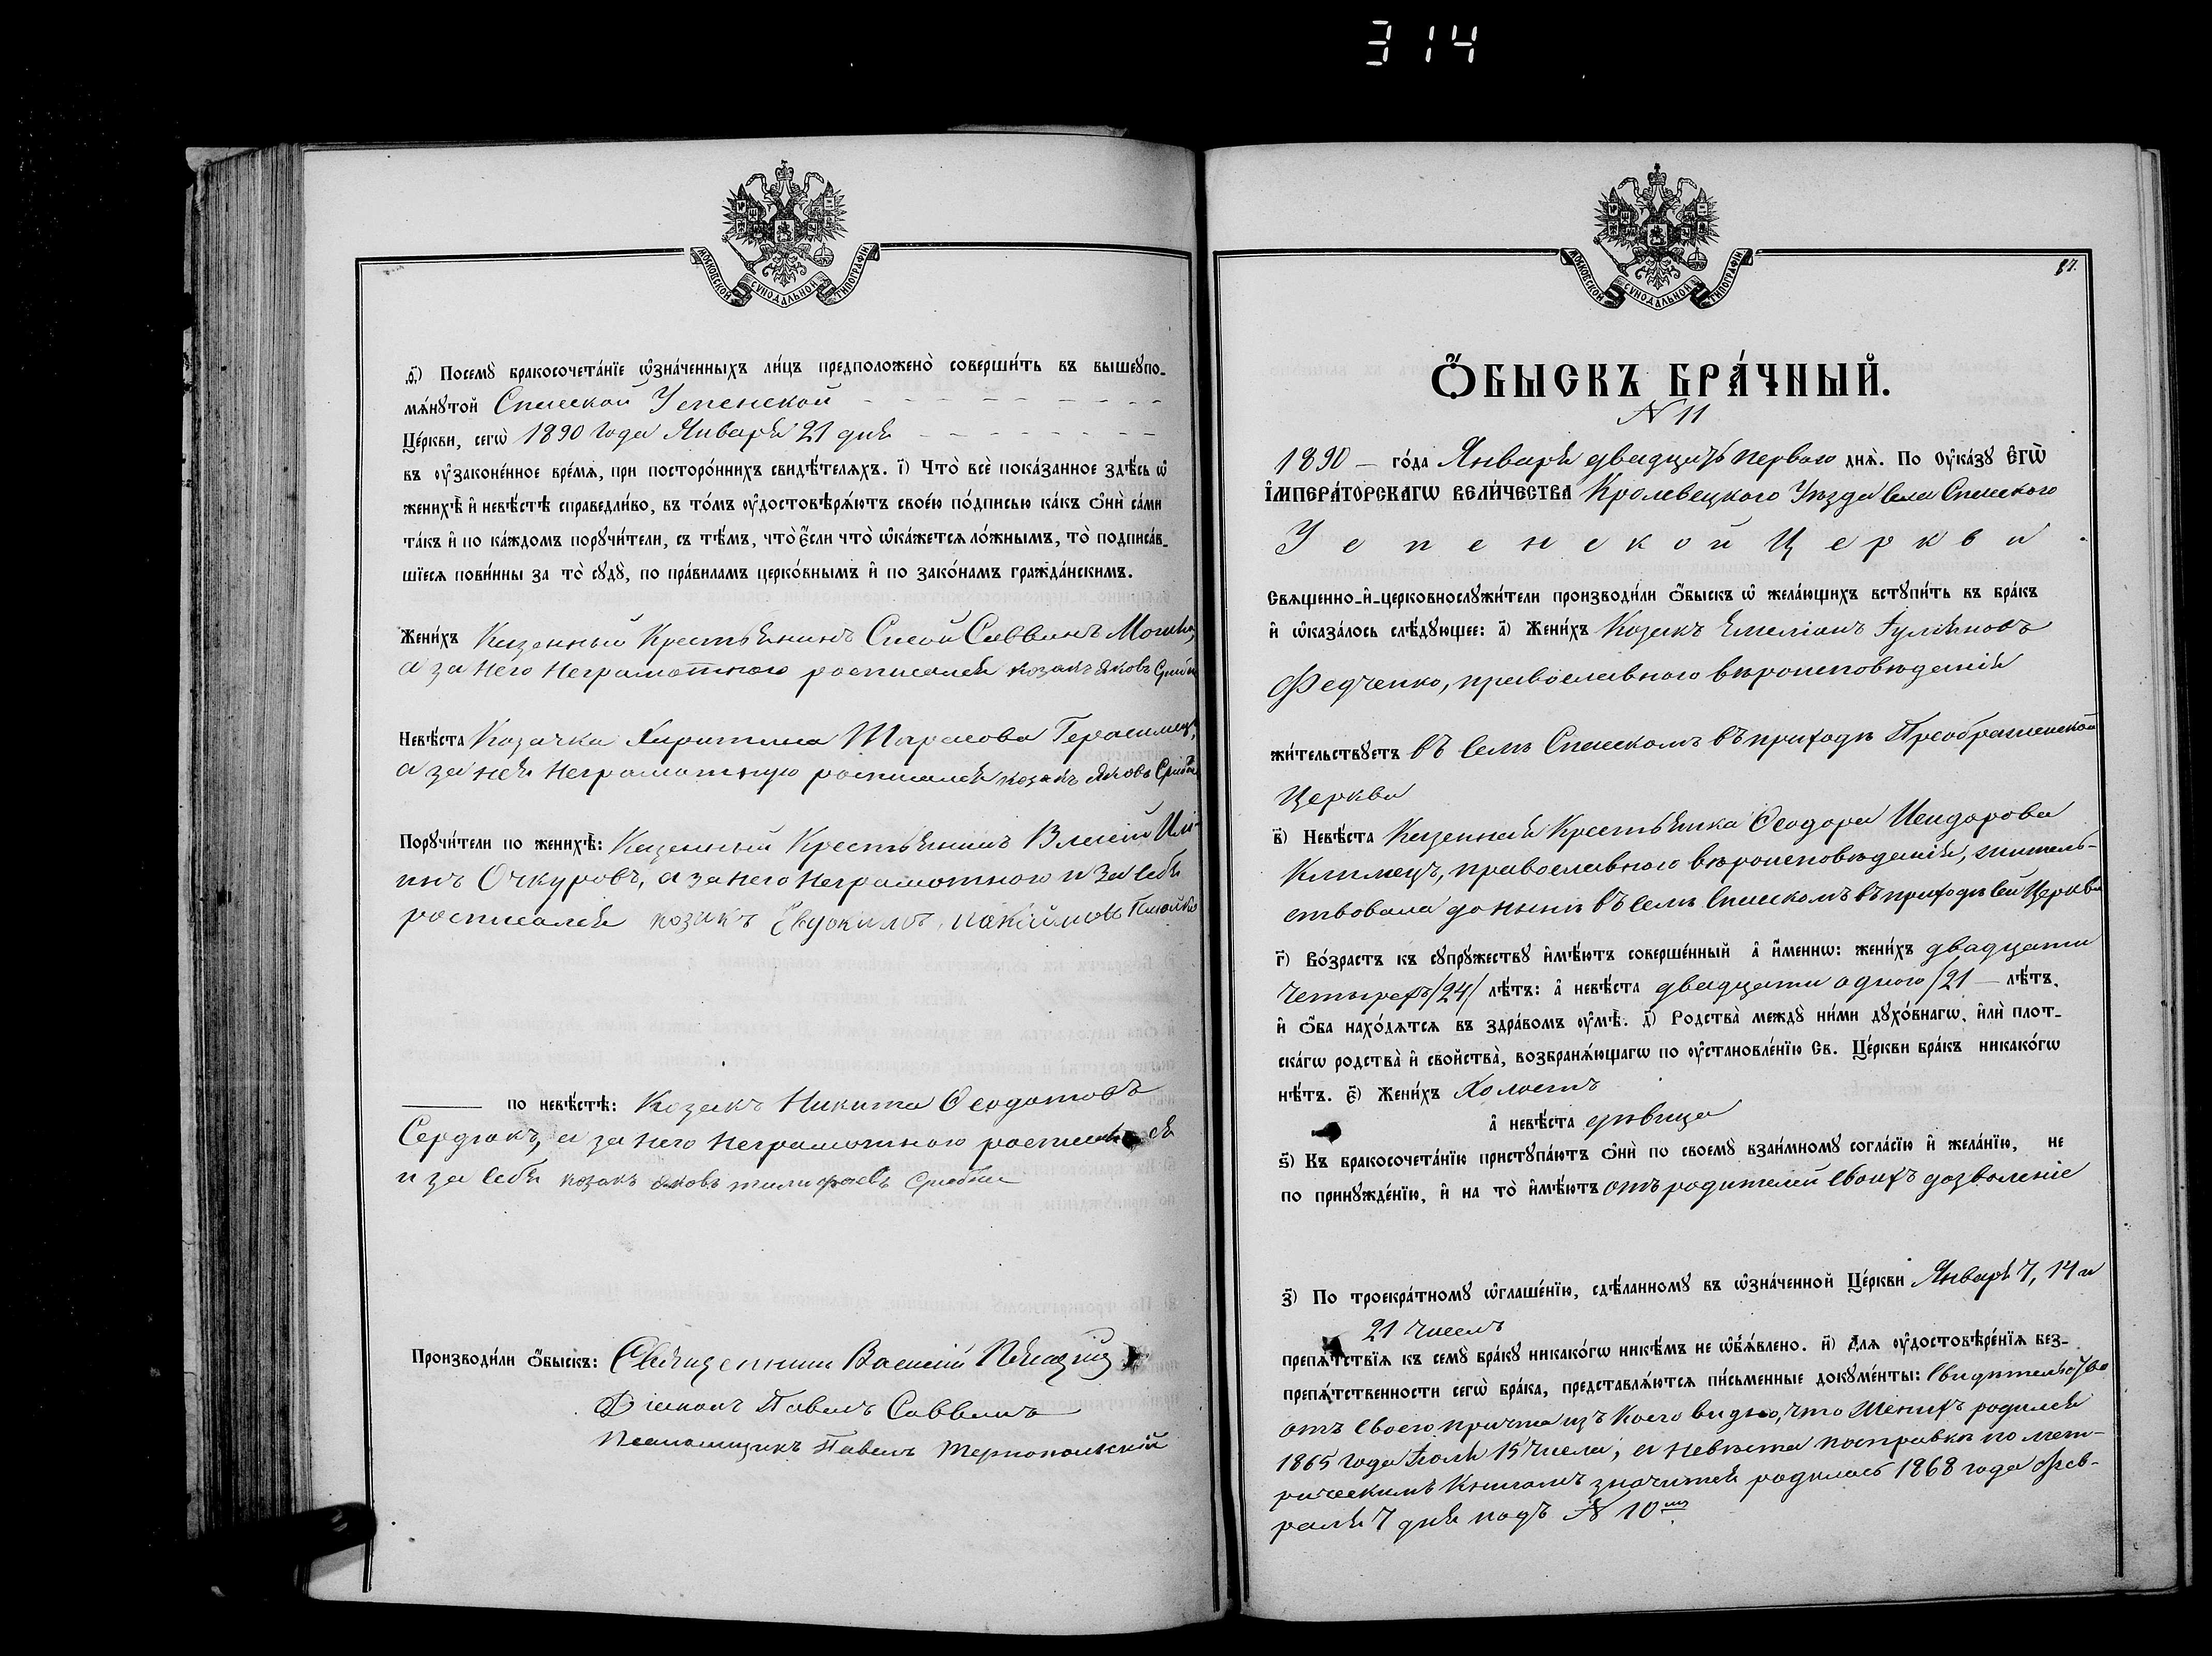 314
МОСКОВСКОЙ СѴНОДАЛЬНОЙ ТИПОГРАФІИ
ѳ҃) Посемꙋ̀ бракосочета́нїе ѡ҆зна́ченныхъ ли́цъ предположено̀ соверши́ть въ вышеꙋпо-
мѧ́нꙋтой Спасской Успенской
Це́ркви, сегѡ̀ 1890 года Января 21 дня
въ ᲂу҆законе́нное вре́мѧ, при посторо́ннихъ свидѣ́телѧхъ. і҃) Что̀ всѐ пока́занное здѣ́сь ѡ҆
женихѣ̀ и҆ невѣ́стѣ справедли́во, въ то́мъ ᲂу҆достовѣрѧ́ютъ свое́ю по́дписью ка́къ ѻ҆нѝ са́ми
та́къ и҆ по ка́ждомъ порꙋчи́тели, съ тѣ́мъ, что̀ є҆́сли что̀ ѡ҆ка́жетсѧ ло́жнымъ, то̀ подписа́в-
шїесѧ пови́нны за то̀ сꙋдꙋ̀, по пра́виламъ церко́внымъ и҆ по зако́намъ гражда́нскимъ.
Жени́хъ Казенный Крестьянинъ Сисой Саввинъ
а за него неграмотного росписался козакъ Яковъ
Невѣ́ста Козачка Харитина Тарасова Герасимец,
а за нея неграмотную росписался козакъ Яковъ
Порꙋчи́тели по женихѣ̀: Казенный Крестьянинъ Власій Иль-
инъ Очкуровъ, а за него неграмотного и за себя
росписался козакъ Евдокимъ
по невѣ́стѣ: Козакъ Никита Ѳеодотовъ
Сердюкъ, а за него неграмотного росписался
и за себя козакъ Яковъ
Производи́ли ѻ҆́быскъ: Священник Василій
Діаконъ Павелъ Саввинъ
Псаломщикъ Павелъ Тернопольскій
87.
Ѻ҆́БЫСКЪ БРА́ЧНЫЙ.
N 11
1890 – го́да Января двадцать первого днѧ̀. По ᲂу҆ка́зꙋ Є҆ГѠ̀
І҆МПЕРА́ТОРСКАГѠ ВЕЛИ́ЧЕСТВА Кролевецкого Уѣзда села Спасского
Успенской Церкви
Свѧщенно-и҆-церковнослꙋжи́тели производи́ли ѻ҆́быскъ ѡ҆ жела́ющихъ встꙋпи́ть въ бра́къ
и҆ ѡ҆каза́лось слѣ́дꙋющее: а҃) Жени́хъ Козакъ Емеліанъ Іуліановъ
Федченко, православного вѣроисповѣданія
жи́тельствꙋетъ въ селѣ Спасскомъ въ приходѣ Преображенской
Церкви
в҃) Невѣ́ста Казенная Крестьянка Ѳеодора Исидорова
Климецъ, православного вѣроисповѣданія, житель-
ствовала до нынѣ въ селѣ Спасскомъ въ приходѣ сей Церкви
г҃) Во́зрастъ къ сꙋпрꙋ́жествꙋ и҆мѣ́ютъ соверше́нный а҆ и҆́меннѡ: жени́хъ двадцати
четырехъ /24/ лѣ́тъ: а҆ невѣ́ста двадцати одного /21 – лѣ́тъ,
и҆ ѻ҆́ба нахо́дѧтсѧ въ здра́вомъ ᲂу҆мѣ̀. д҃) Родства̀ междꙋ̀ ни́ми дꙋхо́внагѡ, и҆лѝ плот-
ска́гѡ родства̀ и҆ сво́йства̀, возбранѧ́ющагѡ по ᲂу҆становле́нїю Св. Це́ркви бра́къ никако́гѡ
нѣ́тъ. є҃) Жени́хъ Холостъ
а҆ невѣ́ста дѣвица
ѕ҃) Къ бракосочета́нїю пристꙋпа́ютъ ѻ҆нѝ по своемꙋ̀ взаи́мномꙋ согла́сїю и҆ жела́нїю, не
по принꙋжде́нїю, и҆ на то̀ и҆мѣ́ютъ отъ родителей своихъ дозволеніе
з҃) По троекра́тномꙋ ѡ҆глаше́нїю, сдѣ́ланномꙋ въ ѡ҆зна́ченной Це́ркви Января 7, 14 и
21 чиселъ
препѧ́тствїѧ къ семꙋ̀ бра́кꙋ никако́гѡ никѣ́мъ не ѡ҆б̾ѧ́влено. и҃) Длѧ ᲂу҆достовѣре́нїѧ без-
препѧ́тственности сегѡ̀ бра́ка, представлѧ́ютсѧ пи́сьменные докꙋме́нты: Свидетельство
отъ своего причта изъ коего видно, что Женихъ родился
1865 года Іюля 15 числа, а невѣста по справкѣ по мет-
рическимъ книгамъ значится родилась 1868 года Фев-
раля 7 дня подъ N 10